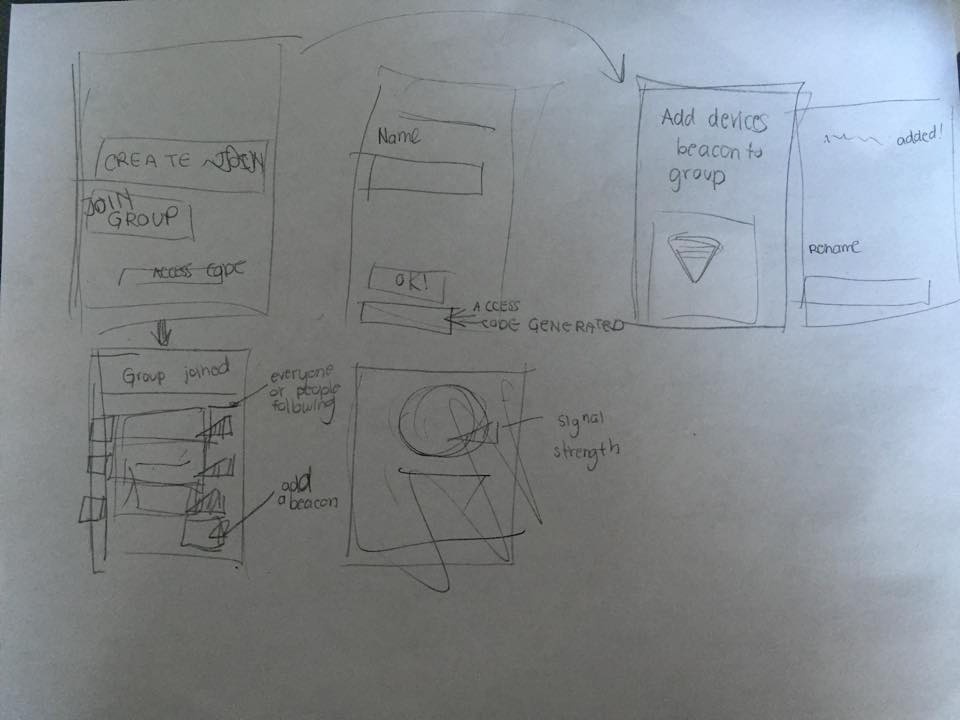 CREATE JOIN
JOIN
GROUP
ACCESS CODE
Name
OK!
ACCESS
CODE GENERATED
Add devices
beacon to
group
added!
Rename
Group joined
everyone
or people
following
add
a beacon
signal
strength